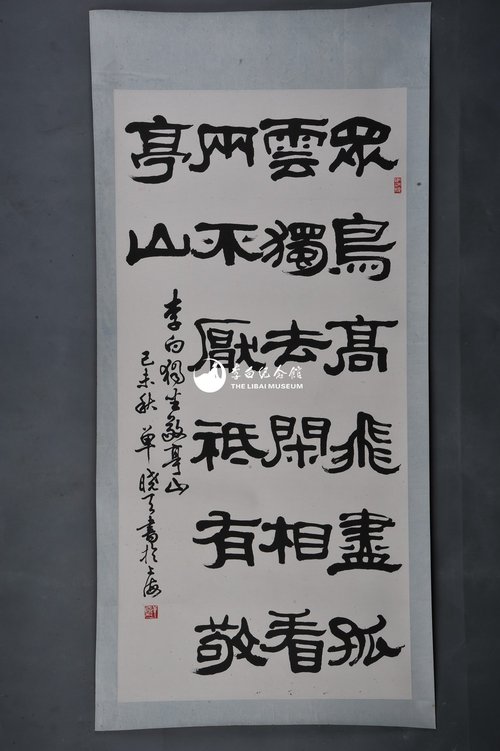 眾鳥高飛盡孤
雲獨去閑相看
兩不厭袛有敬
亭山
李白獨坐敬亭山
己未秋單曉天書於上海
李白纪念馆
THE LIBAI MUSEUM